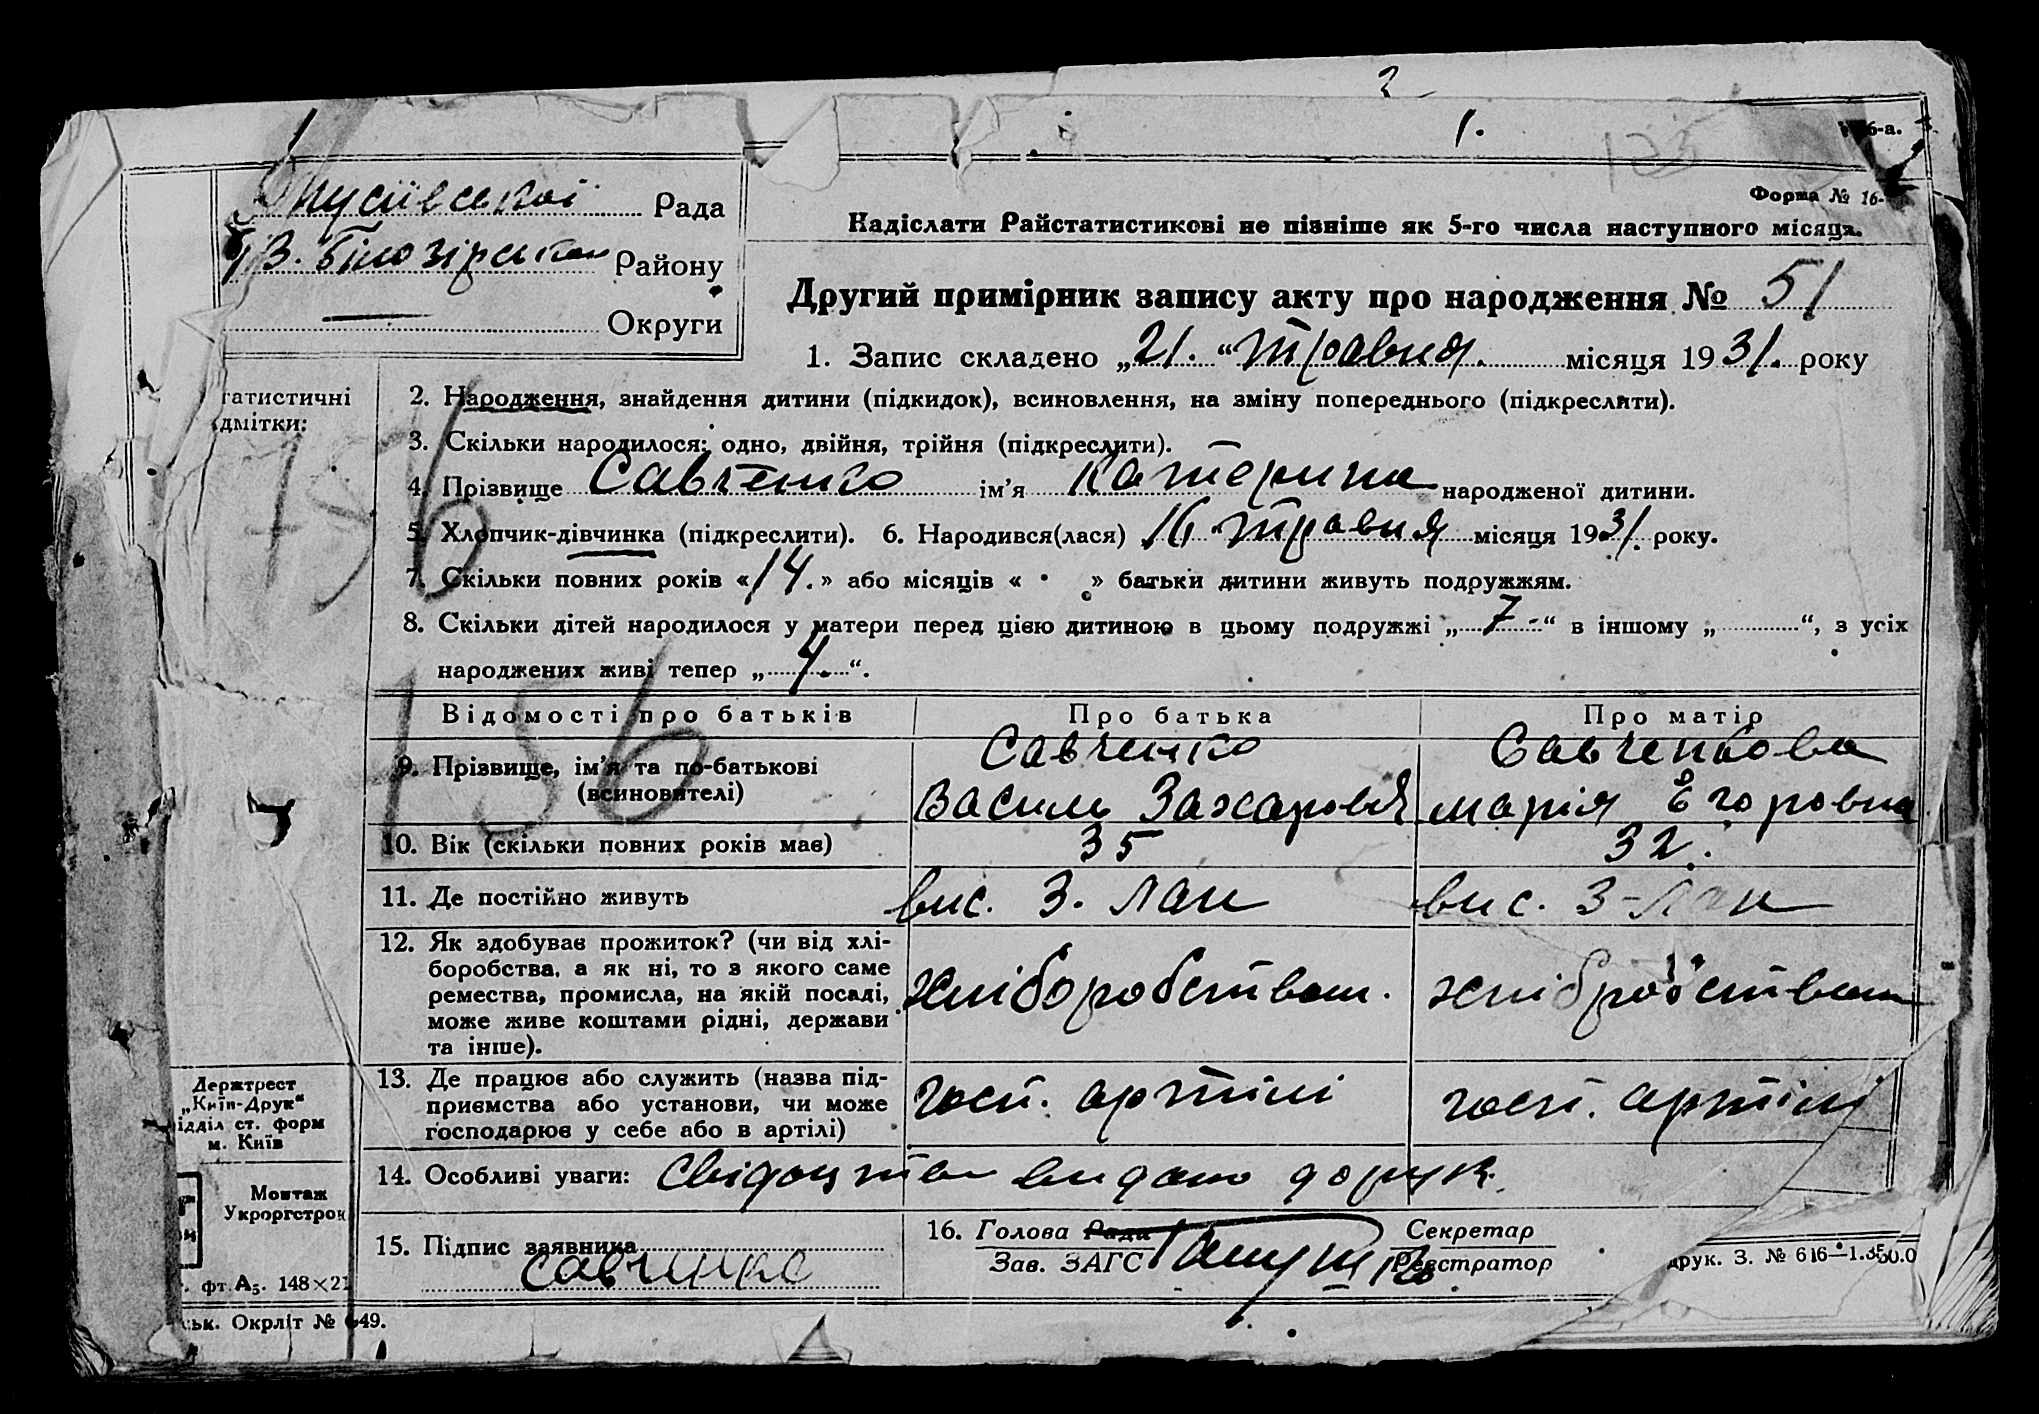 2
1.
6-а.
Форма № 16-
Рада
В. Білозірськ Району
Округи
Надіслати Райстатистикові не пізніше як 5-го числа наступного місяця.
Другий примірник запису акту про народження № 51
1. Запис складено „21.“ травня. місяця 1931. року
татистичні
дмітки:
156
156
2. Народження, знайдення дитини (підкидок), всиновлення, на зміну попереднього (підкреслити).
3. Скільки народилося: одно, двійня, трійня (підкреслити).
4. Прізвище Савченко ім’я Катерина народженої дитини.
5. Хлопчик-дівчинка (підкреслити). 6. Народився(лася) 16 травня місяця 1931. року.
7. Скільки повних років «14.» або місяців « » батьки дитини живуть подружжям.
8. Скільки дітей народилося у матери перед цією дитиною в цьому подружжі „7-“ в іншому „ “, з усіх
народжених живі тепер „4.“.
Відомості про батьків Про батька Про матір
9. Прізвище, ім’я та по-батькові
(всиновителі)
Савченко
Василь Захаров
Савченкова
марія Єгоровна
10. Вік (скільки повних років має) 35 32.
11. Де постійно живуть вис. З. Лан вис. З-Лан
12. Як здобуває прожиток? (чи від хлі-
боробства, а як ні, то з якого саме
ремества, промисла, на якій посаді,
може живе коштами рідні, держави
та інше).
хліборобством.
13. Де працює або служить (назва під-
приємства або установи, чи може
господарює у себе або в артілі)
госп. артілі
госп. артілі
14. Особливі уваги: Свідоцтво видано
15. Підпис заявника Савченко
16. Голова Ради
Зав. ЗАГС
Секретар
Реєстратор
Держтрест
„Київ-Друк“
ідділ ст. форм
м. Київ
Монтаж
Укроргстрой
фт. А5. 148×21
ськ. Окрліт № 649.
друк. З. № 616—1.350.0